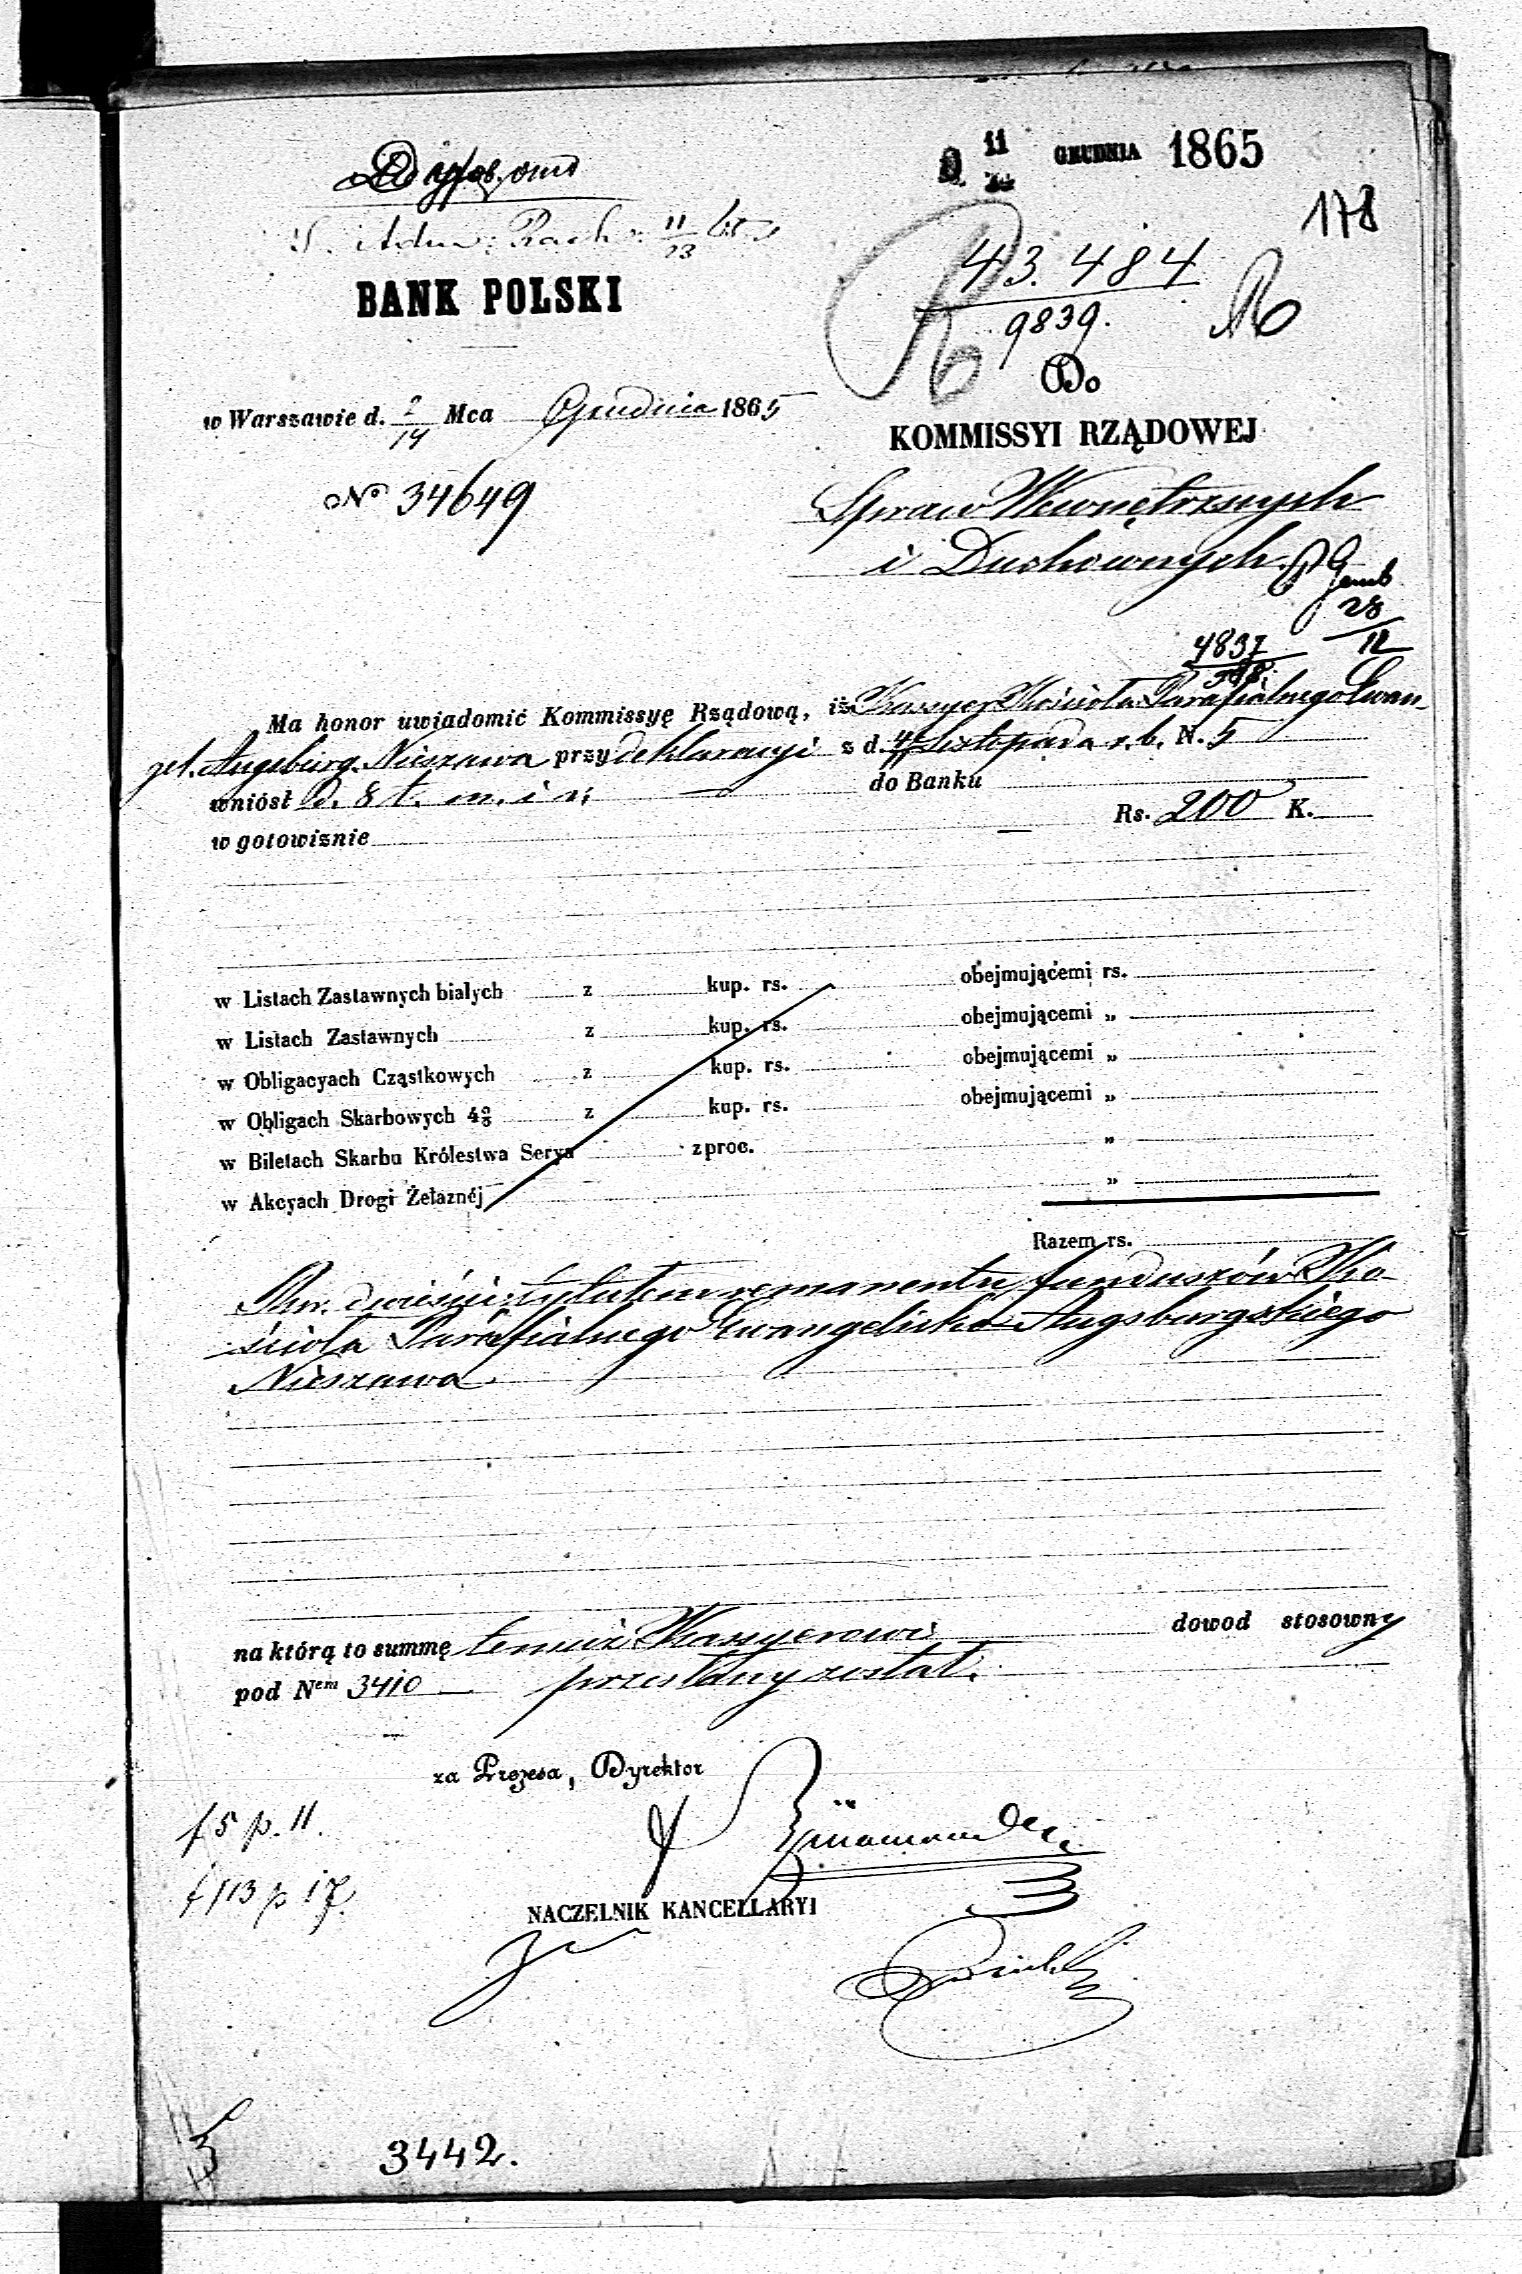 11 GRUDNIA 1865
178
43.484
9839.
BANK POLSKI
Do
w Warszawie d. 2/14 Mca Grudnia 1865
KOMMISSYI RZĄDOWEJ
No 34649
Spraw Wewnętrznych
i Duchownych
28/12
4837
Ma honor uwiadomić Kommissyę Rządową, iż Kassyer Kościoła Parafialnego Ewan
gel. Augsburg. Nieszawa przy deklaracyi z d. Listopada r. b. N. 5
wniósł d. 8 t. m. i r. do Banku
w gotowiznie Rs. 200 K.
w Listach Zastawnych białych z kup. rs. obejmującemi rs.
w Listach Zastawnych z kup. rs. obejmującemi „
w Obligacyach Cząstkowych z kup. rs. obejmującemi „
w Obligach Skarbowych 4% z kup. rs. obejmującemi „
w Biletach Skarbu Królestwa Serya z proc. „
w Akcyach Drogi Żelaznéj „
Razem rs.
dwieście tytułem remanentu funduszów Ko-
ścioła Parafialnego Ewangelicko Augsburgskiego
Nieszawa
na którą to summę temuż Kassyerowi dowod stosowny
pod Nem 3410 przesłany został.
za Prezesa, Dyrektor
f 5 p. 11.
f 113 p 17.
NACZELNIK KANCELLARYI
3442.